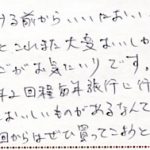 ける前からいいにおい
とこれまた大変おいしか
ごがお気にいりです。
年に回程毎年旅行に行
おいしいものがあるなんて
回からはぜひ買ってこようと